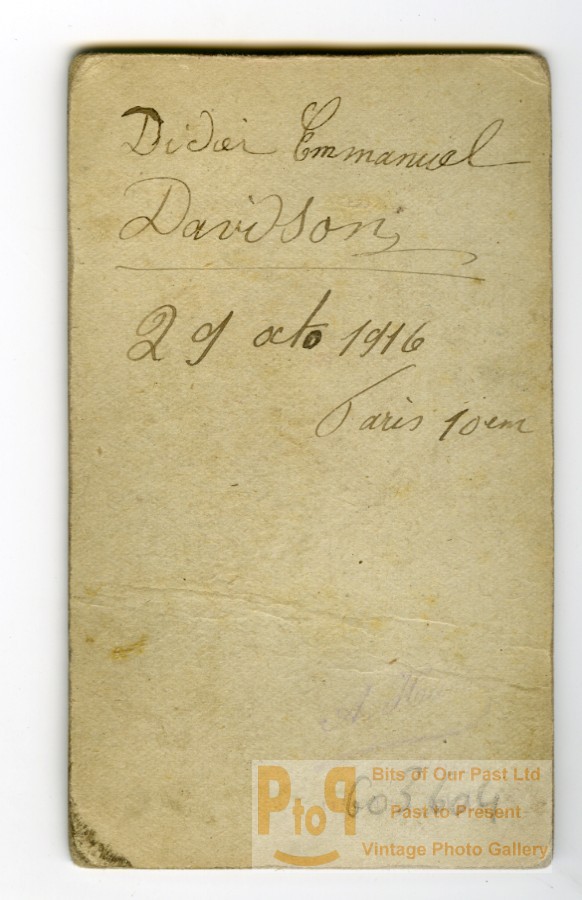 Didier Emmanuel
Davidson
29 octo 1916
Paris 10em
PtoP
Bits of Our Past Ltd
Past to Present
Vintage Photo Gallery